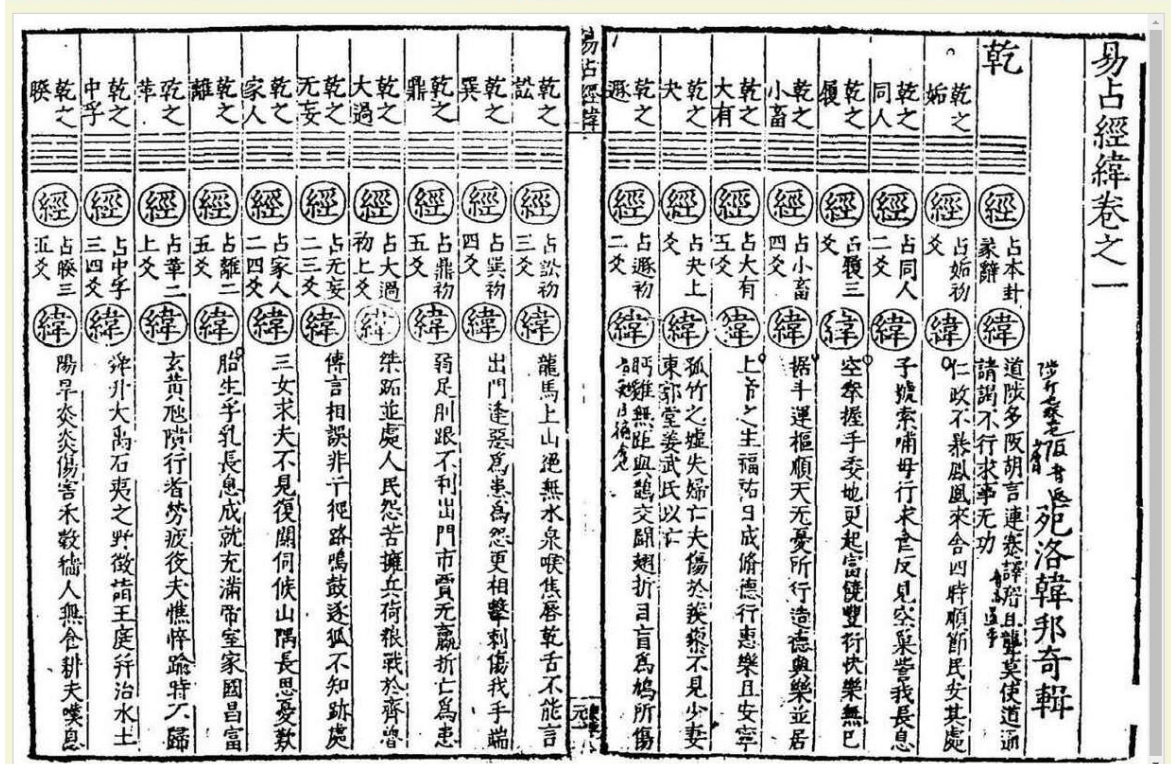 易占經緯卷之一
苑洛韓邦奇輯
乾
經
占本卦
彖辭
緯
道陟多阪胡言連蹇譯瘖且聾莫使道通
請謁不行求事无功
乾之
姤
經
占姤初
爻
緯
仁政不暴鳳凰來舍四時順節民安其處
乾之
同人
經
占同人
二爻
緯
子號索哺母行求食反見空巢訾我長息
乾之
履
經
占履三
爻
緯
空拳握手委地更起富饒豐衍快樂無已
乾之
小畜
經
占小畜
四爻
緯
据斗運樞順天无憂所行造德與樂並居
乾之
大有
經
占大有
五爻
緯
上帝之生福祐日成脩德行惠樂且安寧
乾之
夬
經
占夬上
爻
緯
孤竹之墟失婦亡夫傷於蒺藜不見少妻
東郭堂姜武氏以亡
乾之
遯
經
占遯初
二爻
緯
眄雞無距與鵲交鬭翅折目盲為鳩所傷
易占經緯
乾之
訟
經
占訟初
三爻
緯
龍馬上山絕無水泉喉焦唇乾舌不能言
乾之
巽
經
占巽初
四爻
緯
出門逢惡為患為怨更相擊刺傷我手端
乾之
鼎
經
占鼎初
五爻
緯
弱足刖跟不利出門市賈无贏折亡為患
乾之
大過
經
占大過
初上爻
緯
桀跖並處人民怨苦擁兵荷糧戰於齊魯
乾之
无妄
經
占无妄
二三爻
緯
傳言相誤非干徑路鳴鼓逐狐不知跡處
乾之
家人
經
占家人
二四爻
緯
三女求夫不見復關伺候山隅長思憂歎
乾之
離
經
占離二
五爻
緯
胎生孚乳長息成就充滿帝室家國昌富
乾之
革
經
占革二
上爻
緯
玄黃虺隤行者勞疲役夫憔悴踰時不歸
乾之
中孚
經
占中孚
三四爻
緯
舜升大禹石夷之野徵詣王庭拜治水土
乾之
睽
經
占睽三
五爻
緯
陽旱炎炎傷害禾穀穡人無食耕夫嘆息